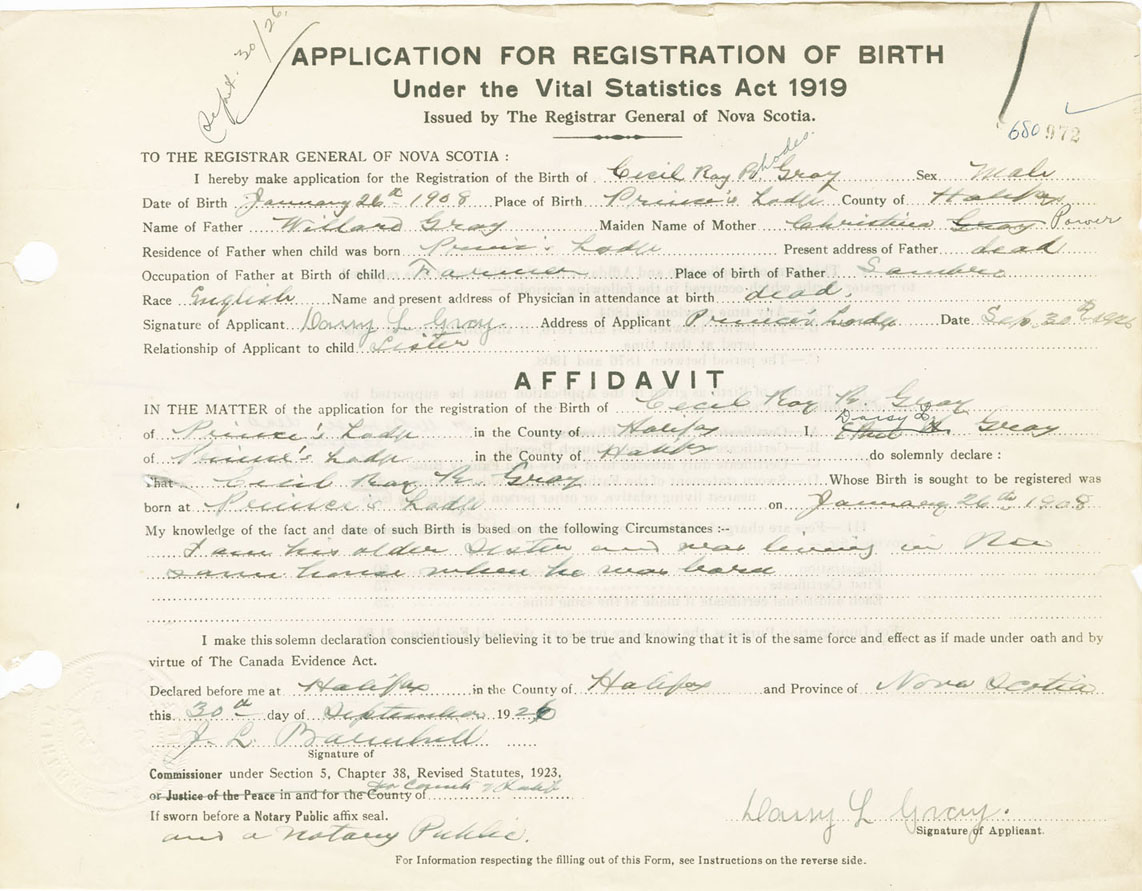 Sept. 30/26.
APPLICATION FOR REGISTRATION OF BIRTH
Under the Vital Statistics Act 1919
Issued by The Registrar General of Nova Scotia.
680 972
TO THE REGISTRAR GENERAL OF NOVA SCOTIA :
Rhodes.
I hereby make application for the Registration of the Birth of Cecil Ray R. Gray Sex Male
Date of Birth January 26th 1908 Place of Birth Prince's Lodge County of Halifax
Name of Father Willard Gray Maiden Name of Mother Christina Gray Power
Residence of Father when child was born Prince's Lodge Present address of Father dead
Occupation of Father at Birth of child Farmer Place of birth of Father Sambro
Race English Name and present address of Physician in attendance at birth dead.
Signature of Applicant Daisy L Gray Address of Applicant Prince's Lodge Date Sep. 30th 1926
Relationship of Applicant to child Sister
AFFIDAVIT
IN THE MATTER of the application for the registration of the Birth of Cecil Ray R. Gray
Daisy L
of Prince's Lodge in the County of Halifax I, Gray
of Prince's Lodge in the County of Halifax do solemnly declare :
That Cecil Ray R. Gray Whose Birth is sought to be registered was
born at Prince's Lodge on January 26th 1908
My knowledge of the fact and date of such Birth is based on the following Circumstances :--
I am his older sister and was living in the
same house when he was born
I make this solemn declaration conscientiously believing it to be true and knowing that it is of the same force and effect as if made under oath and by
virtue of The Canada Evidence Act.
Declared before me at Halifax in the County of Halifax and Province of Nova Scotia
this 30th day of September 1926
J. L. Barnhill
Signature of
Commissioner under Section 5, Chapter 38, Revised Statutes, 1923,
or Justice of the Peace in and for the County of
If sworn before a Notary Public affix seal.
and a Notary Public.
Daisy L Gray.
Signature of Applicant.
For Information respecting the filling out of this Form, see Instructions on the reverse side.